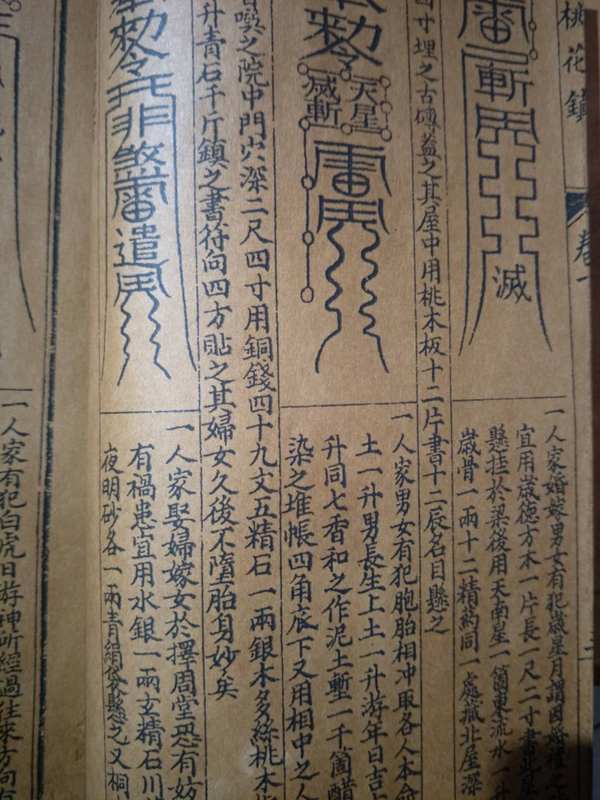 桃花鎮
卷一
斬
滅
一人家婚嫁男女有犯歲星月
宜用歲德方木一片長一尺二寸書北
懸挂於梁後用天南星一箇東流水一升
歲骨一兩十二精藥同一處藏北屋深
四寸埋之古磚蓋之其屋中用桃木板十二片書十二辰名目懸之
敕令
天星
滅斬
一人家男女有犯胞胎相冲取各人本命
土一升男長生上土一升游年日吉
升同七香和之作泥土塹一千箇醋
染之堆帳四角底下又用相中之人
噀之院中門穴深二尺四寸用銅錢四十九文五精石一兩銀木多絲桃木
升青石千斤鎮之書符向四方貼之其婦女久後不墮胎身妙矣
敕令
非煞
遣
一人家娶婦嫁女於擇周堂恐有妨
有禍患宜用水銀一兩玄精石川
夜明砂各一兩青絹袋懸之又桐
一人家有犯白虎日游神所經過往來方向有